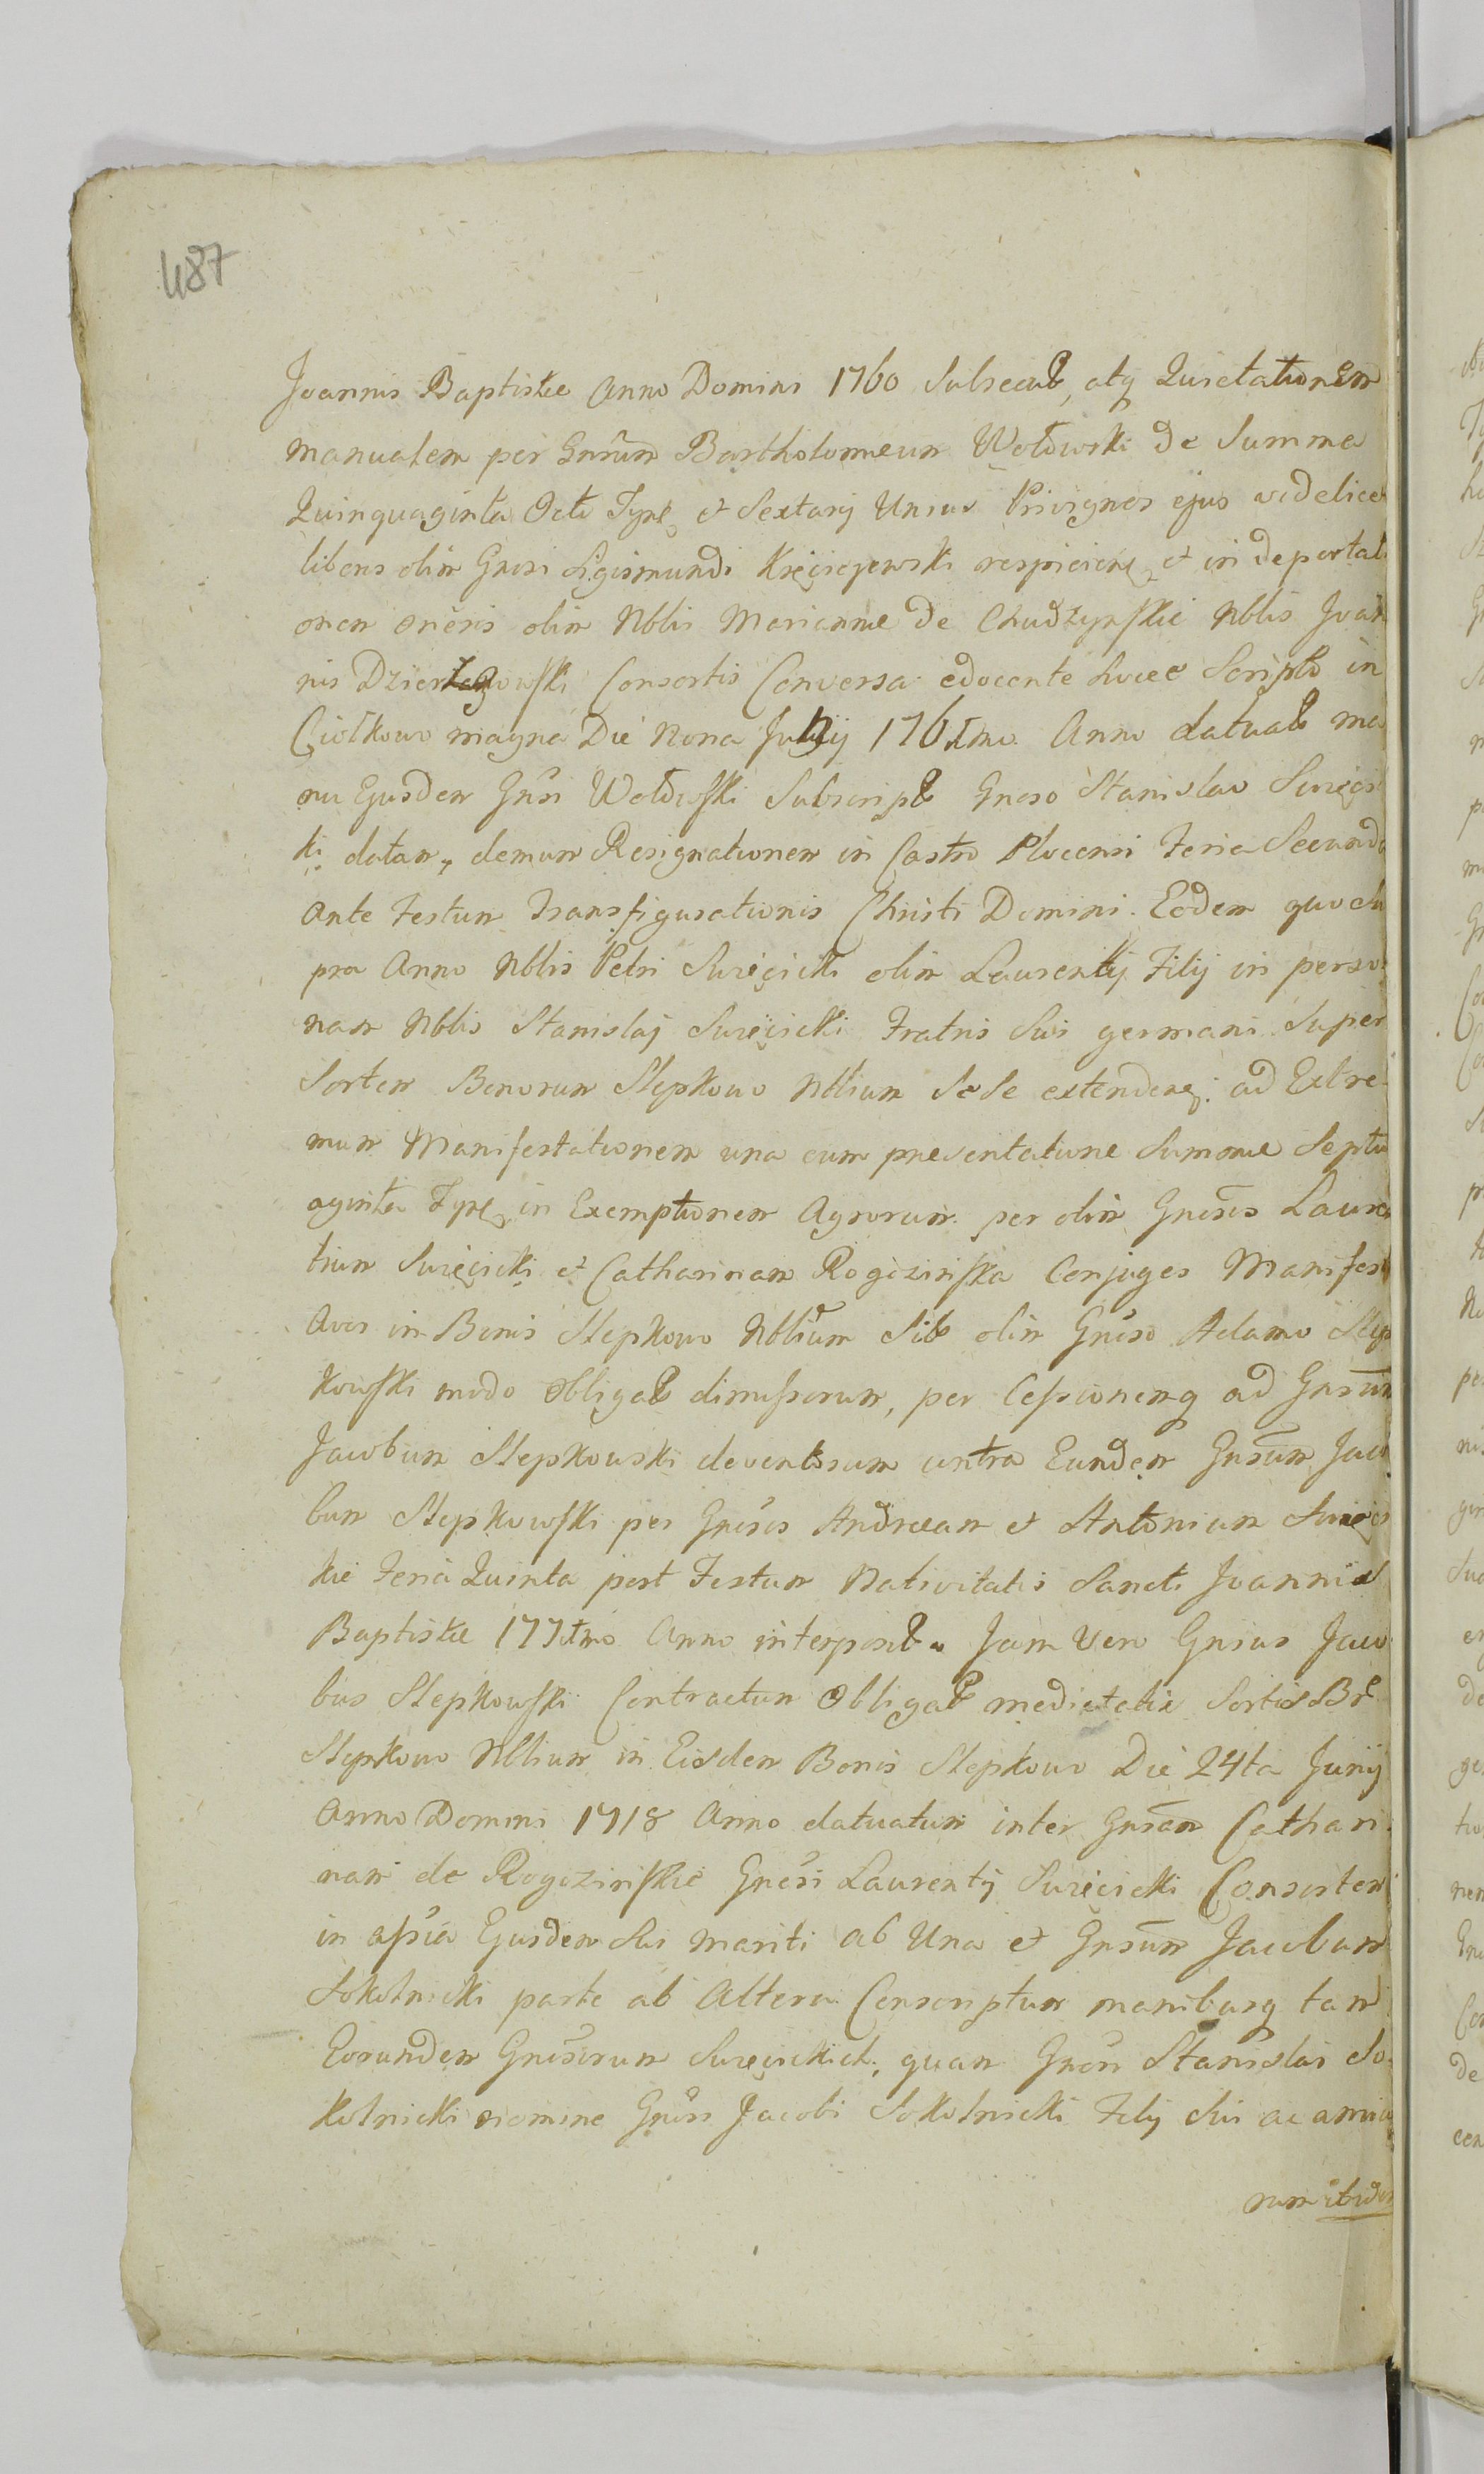 487
Joannis Baptistæ Anno Domini 1760 Subsecut, atq Quietationem
manualem per Gnrum Bartholomeum Wołowski de Summa
Quinquaginta Octo Tynf et Sextarij Unius Privignos ejus videlicet
liberos olim Grosi Sigismundi respicien et in deportati
onem oneris olim Nblis Mariannæ de Chudzynskie Nblis Joan
nis Dzierżgowski Consortis Conversa edocente luce Scripto in
Ciołkowo magna Die Nona 176 mo Anno datuat ma
nu Ejusdem Grosi Wołowski Subscript Groso Stanislao Suręcic
ki datam, demum Resignationem in Castro Plocensi Feria Secunda
Ante Festum Transfigurationis Christi Domini Eodem quo Su
pra Anno Nblis Petri Suręcicki olim Laurentij Filij in perso
nam Nblis Stanislaj Suręcicki Fratris Sui germani Super
Sortem Bonorum Slepkowo Nblium Sese extenden: ad Extre
mum Manifestationem una cum præsentatione Summæ Septu
aginta Tynf in Exemptionem Agrorum per olim Grosos Lauren
tium Suręcicki et Catharinam Rogozinska Conjuges Manifest
Avos in Bonis Slepkowo Nblium Sib olim Groso Adamo Slep
kowski modo Obligat dimissorum, per Cessionemq ad Grosum
Jacobum Slepkowski devolutorum contra Eundem Grosum Jaco
bum Slepkowski per Grosos Andream et Antonium Suręcic
kie Feria Quinta post Festum Nativitatis Sancti Joannis
Baptistæ 177 mo Anno interposit. Jam Vero Grosus Jaco
bus Slepkowski Contractum Obligat medietatis Sortis Br
Slepkowo Nblium in Eisdem Bonis Slepkowo Die 24ta Junij
Anno Domini 1718 Anno datuatum inter Grosam Cathari
nam de Rogozinskie Grosi Laurentij Suręcicki Consortem
in assia Ejusdem Sui mariti ab Una et Grosum Jacobum
Sokolnicki parte ab Altera Conscriptum manibusq tam
Eorundem Grosorum Suręcickich, quam Grosi Stanislai So
kolnicki nomine Grosi Jacobi Sokolnicki Filij Sui ac amico
rum ibidem